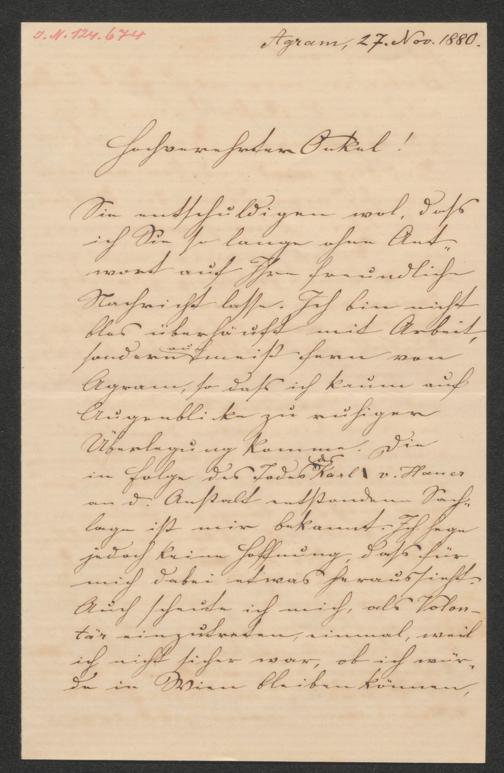 I.N. 124.674
Agram, 27. Nov. 1880.
Hochverehrter Onkel!
Sie entschuldigen wol, dass
ich Sie so lange ohne Ant-
wort auf Ihre freundliche
Nachricht lasse. Ich bin nicht
blos überhäuft mit Arbeit,
sondern auch meist fern von
Agram, so dass ich kaum auf
Augenblicke zu ruhiger
Überlegung komme. Die
in Folge des Todes des Karl v. Hauer
an d. Anstalt entstandene Sach-
lage ist mir bekannt. Ich hege
jedoch keine Hoffnung, dass für
mich dabei etwas heraussieht.
Auch scheute ich mich, als Volon-
tär einzutreten, einmal, weil
ich nicht sicher war, ob ich wür-
de in Wien bleiben können,